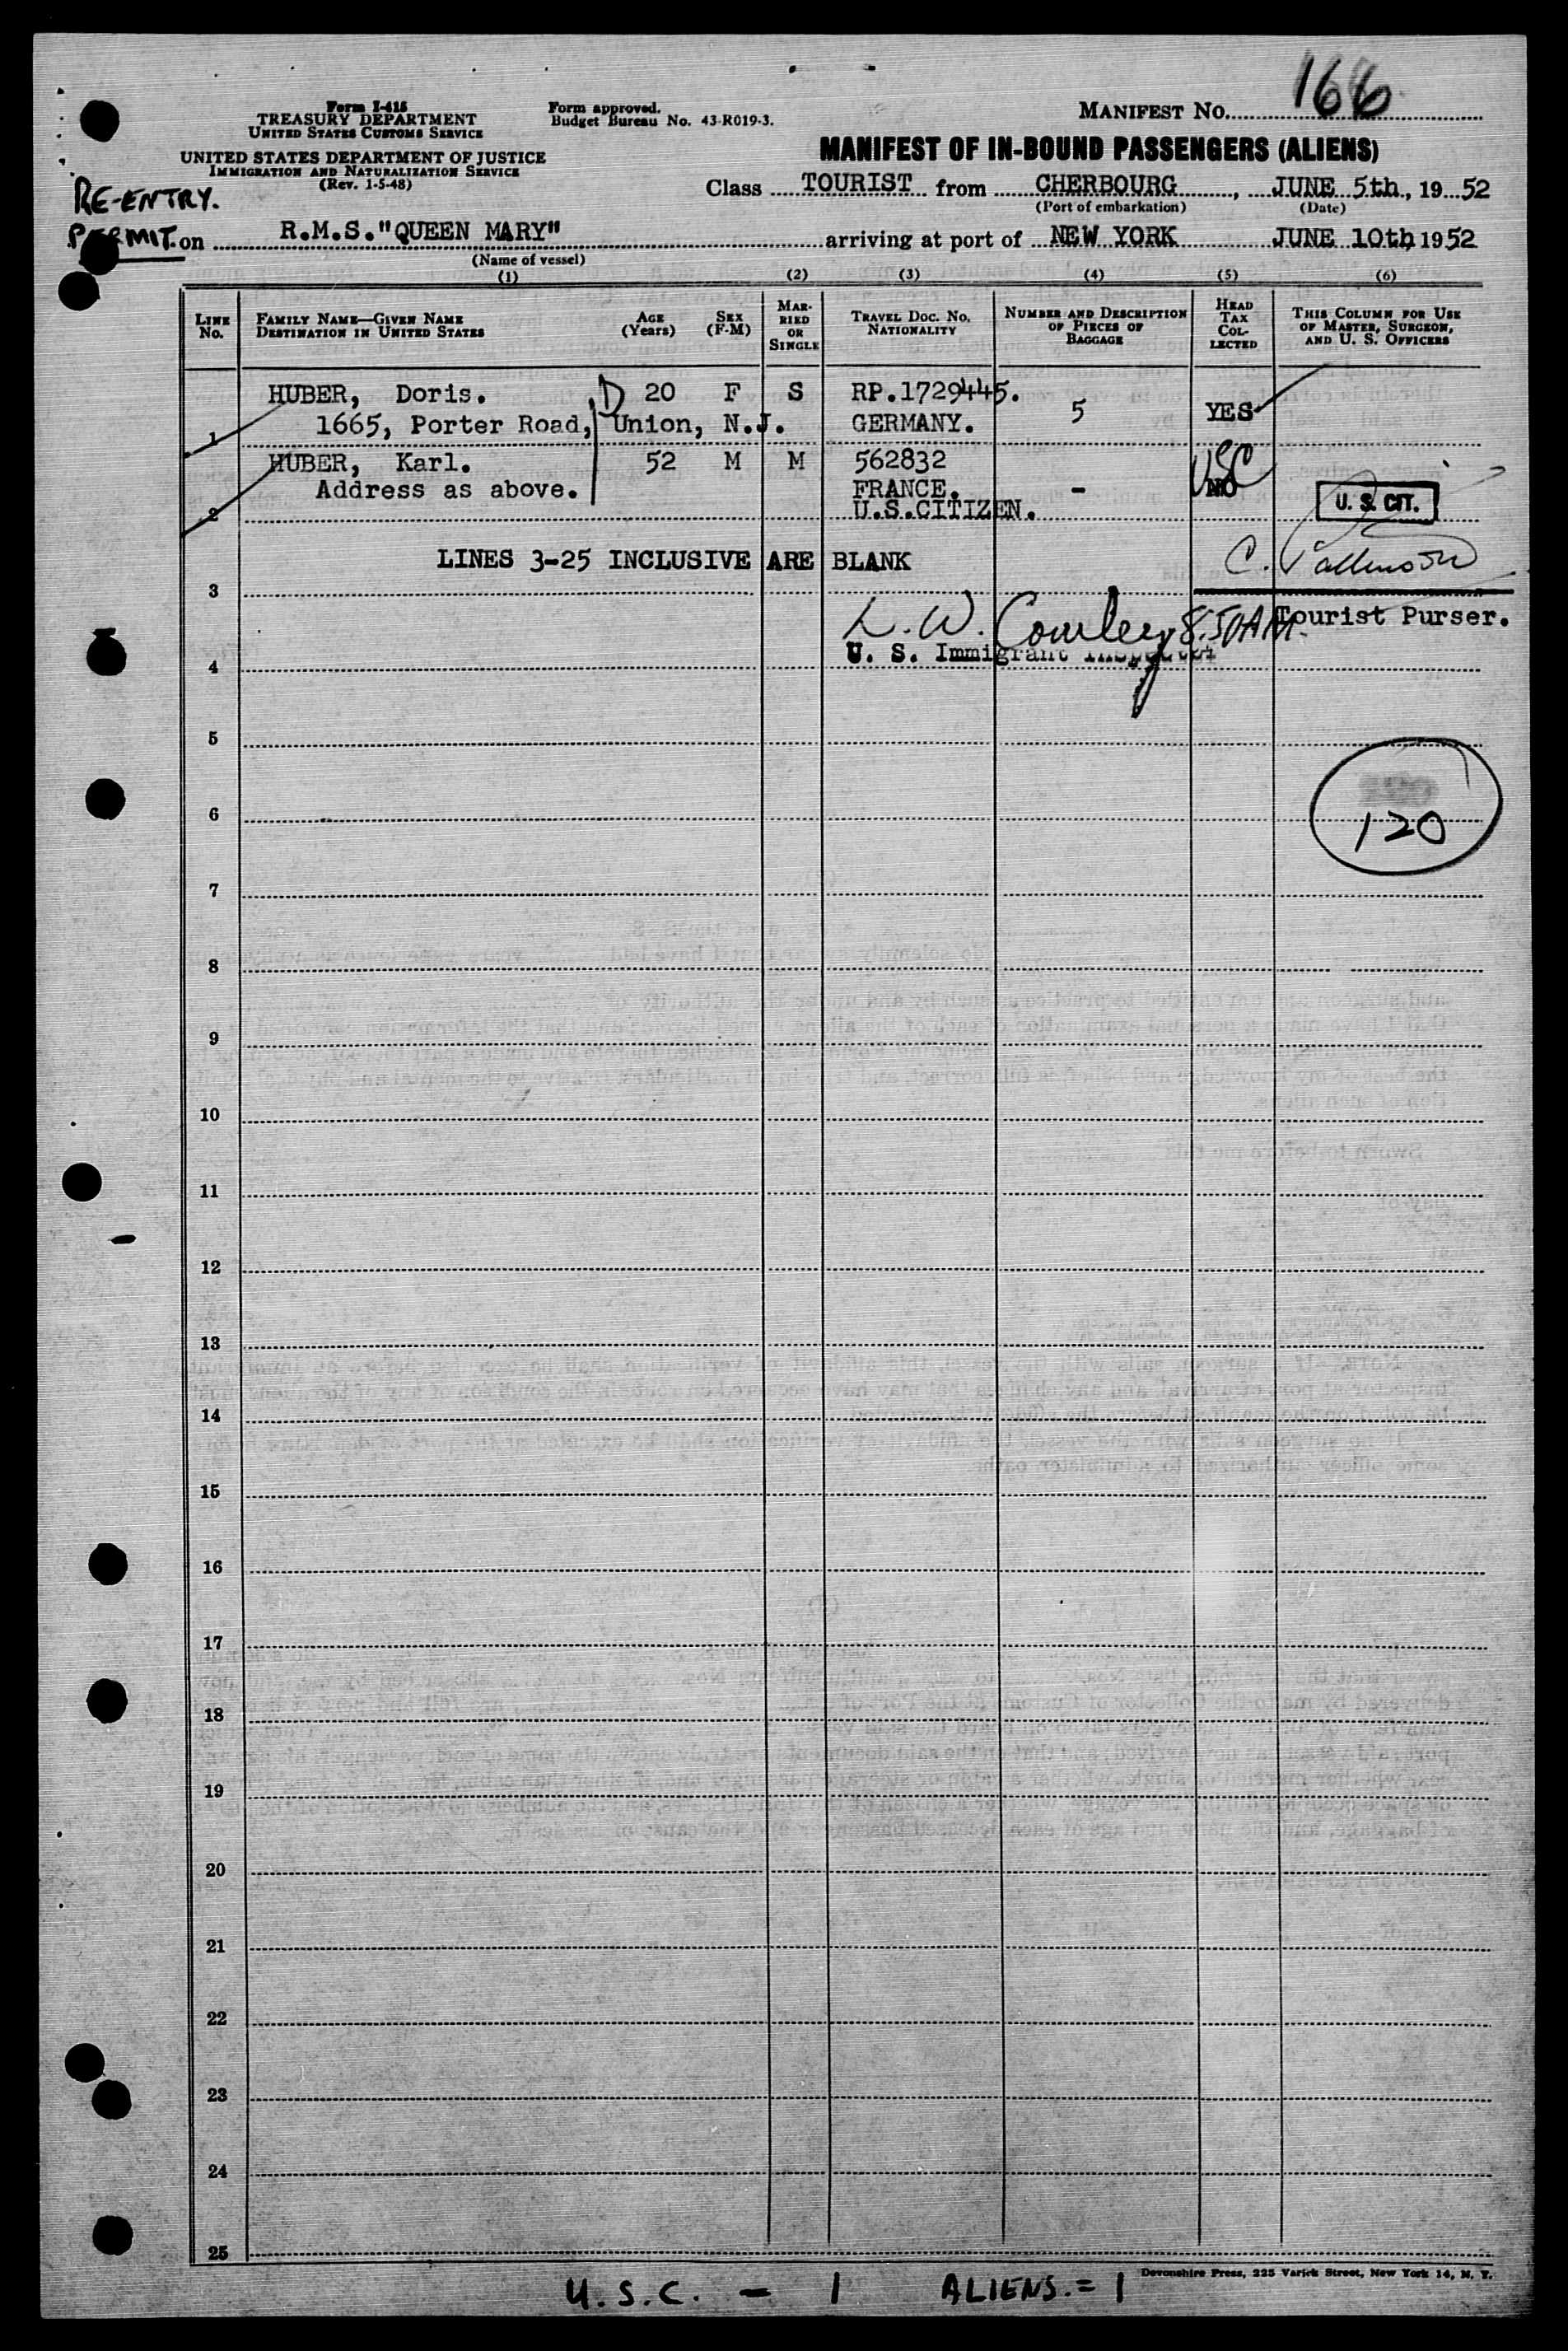 166
Form I-415
TREASURY DEPARTMENT
UNITED STATES CUSTOMS SERVICE
Form approved.
Budget Bureau No. 43-R019-3.
MANIFEST NO.
UNITED STATES DEPARTMENT OF JUSTICE
IMMIGRATION AND NATURALIZATION SERVICE
(Rev. 1-5-48)
MANIFEST OF IN-BOUND PASSENGERS (ALIENS)
RE-ENTRY.
PERMIT.
Class TOURIST from CHERBOURG, JUNE 5th, 1952
(Port of embarkation) (Date)
on R.M.S."QUEEN MARY" arriving at port of NEW YORK JUNE 10th, 1952
(Name of vessel)
(1) (2) (3) (4) (5) (6)
LINE No.
FAMILY NAME—GIVEN NAME
DESTINATION IN UNITED STATES
AGE (Years)
SEX (F-M)
MARRIED OR SINGLE
TRAVEL DOC. NO.
NATIONALITY
NUMBER AND DESCRIPTION OF PIECES OF BAGGAGE
HEAD TAX COLLECTED
THIS COLUMN FOR USE OF MASTER, SURGEON, AND U. S. OFFICERS
HUBER, Doris. D 20 F S RP.1729445.
1 1665, Porter Road, Union, N.J. GERMANY. 5 YES
HUBER, Karl. 52 M M 562832 USC
Address as above. FRANCE. - NO U. S. CIT.
2 U.S.CITIZEN.
LINES 3-25 INCLUSIVE ARE BLANK
3
L. W. 8:50AM Tourist Purser.
U. S. Immigrant Inspector
4
5
6
120
7
8
9
10
11
12
13
14
15
16
17
18
19
20
21
22
23
24
25
Devonshire Press, 225 Varick Street, New York 14, N. Y.
U.S.C. - 1 ALIENS. = 1